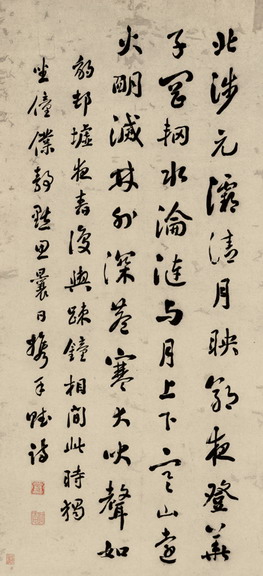 北涉元灞清月映郭夜登華
子岡輞水淪漣与月上下寒山遠
火明滅林外深巷寒犬吠聲如
豹邨墟夜舂復與疎鐘相間此時獨
坐僮僕靜默思曩日攜手賦詩